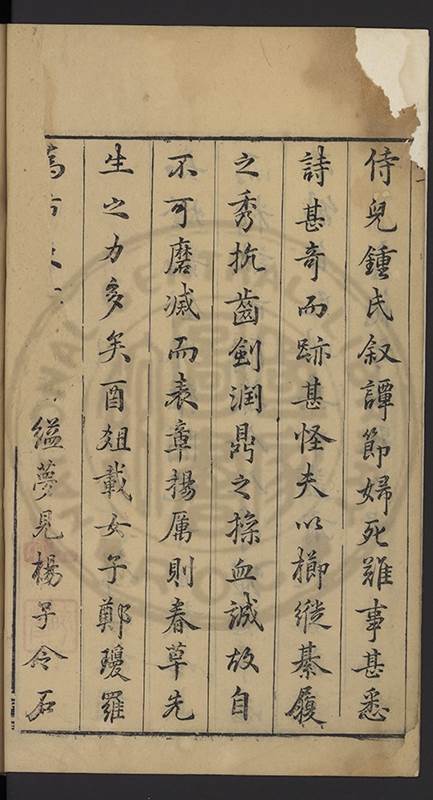 侍兒鍾氏叙譚節婦死難事甚悉
詩甚奇而跡甚怪夫以櫛縰綦履
之秀抗齒劍潤鼎之操血誠故自
不可磨滅而表章揚厲則春草先
生之力多矣酉爼載女子鄭瓊羅
縊夢見楊子令石